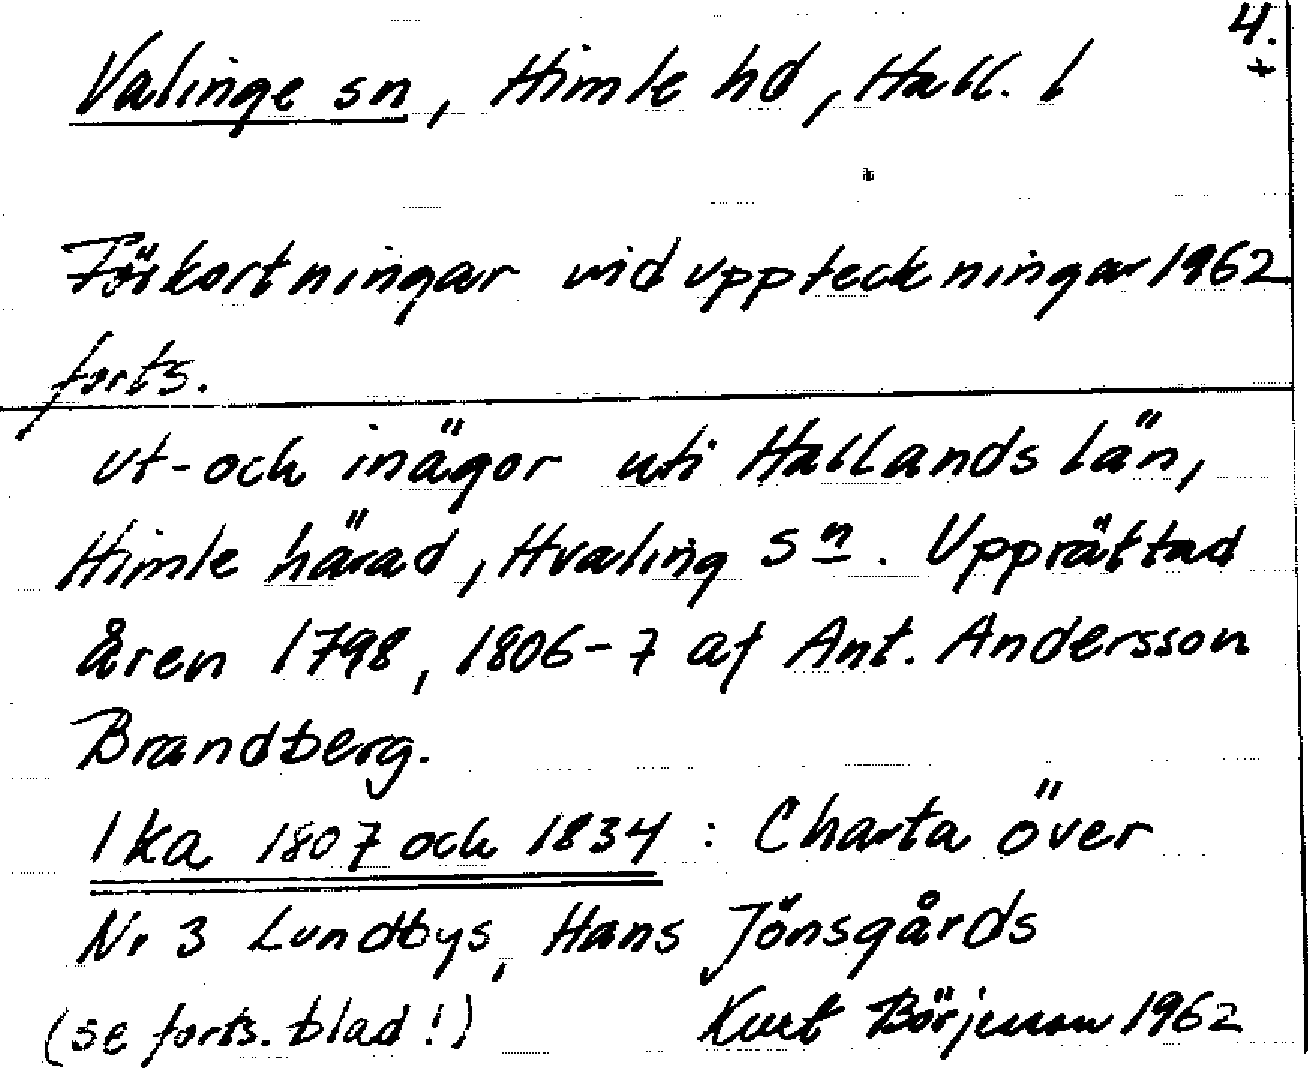 4.
Valinge sn, Himle hd, Hall. l
Förkortningar vid uppteckningar 1962
forts.
ut- och inägor uti Hallands län,
Himle härad, Hvaling Sn. Upprättad
åren 1798, 1806-7 af Ant. Andersson
Brandberg.
lka 1807 och 1834 : Charta över
Nr 3 Lundbys, Hans Jönsgårds
(se forts. blad!) Kurt Börjesson 1962